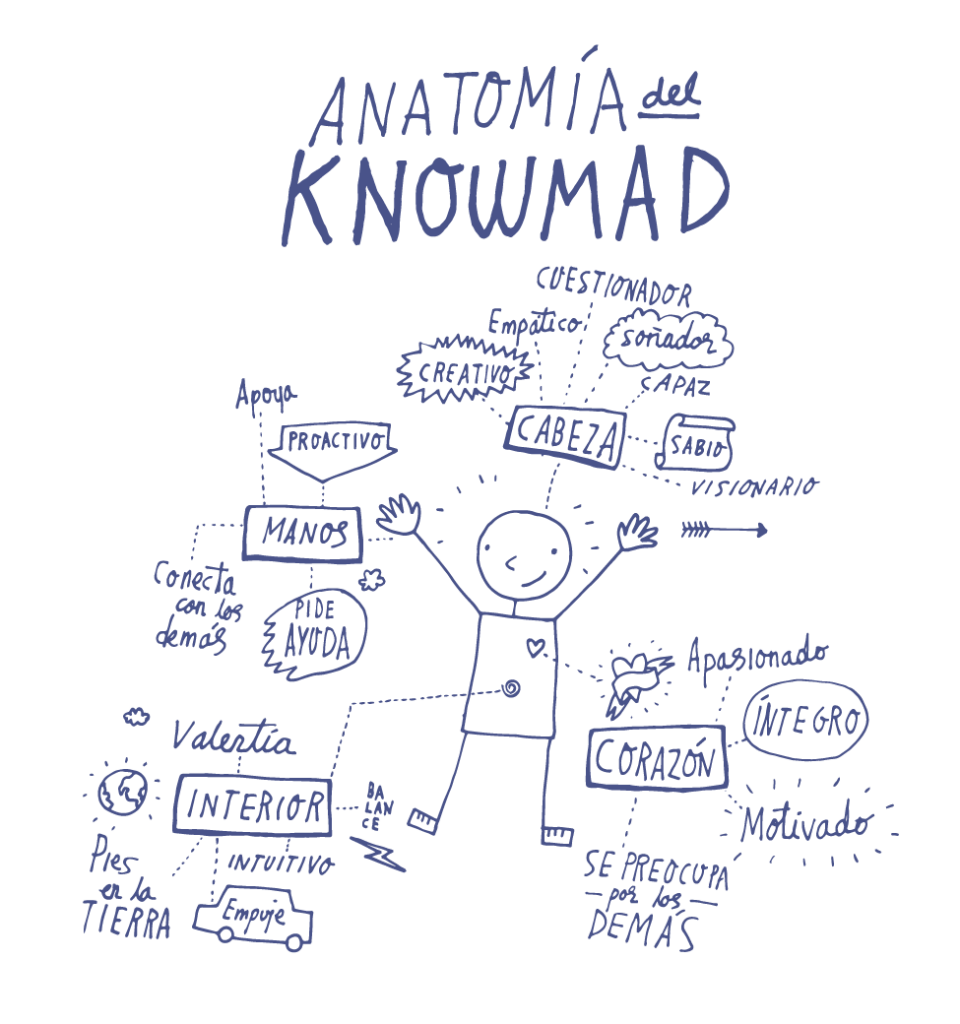 ANATOMÍA del
KNOWMAD
CUESTIONADOR
Empático
soñador
CREATIVO
CAPAZ
CABEZA
SABIO
VISIONARIO
Apoya
PROACTIVO
MANOS
Conecta
con los
demás
PIDE
AYUDA
Apasionado
ÍNTEGRO
CORAZÓN
Motivado
SE PREOCUPA
por los
DEMÁS
Valentía
INTERIOR
BA
LAN
CE
INTUITIVO
Pies
en la
TIERRA
Empuje